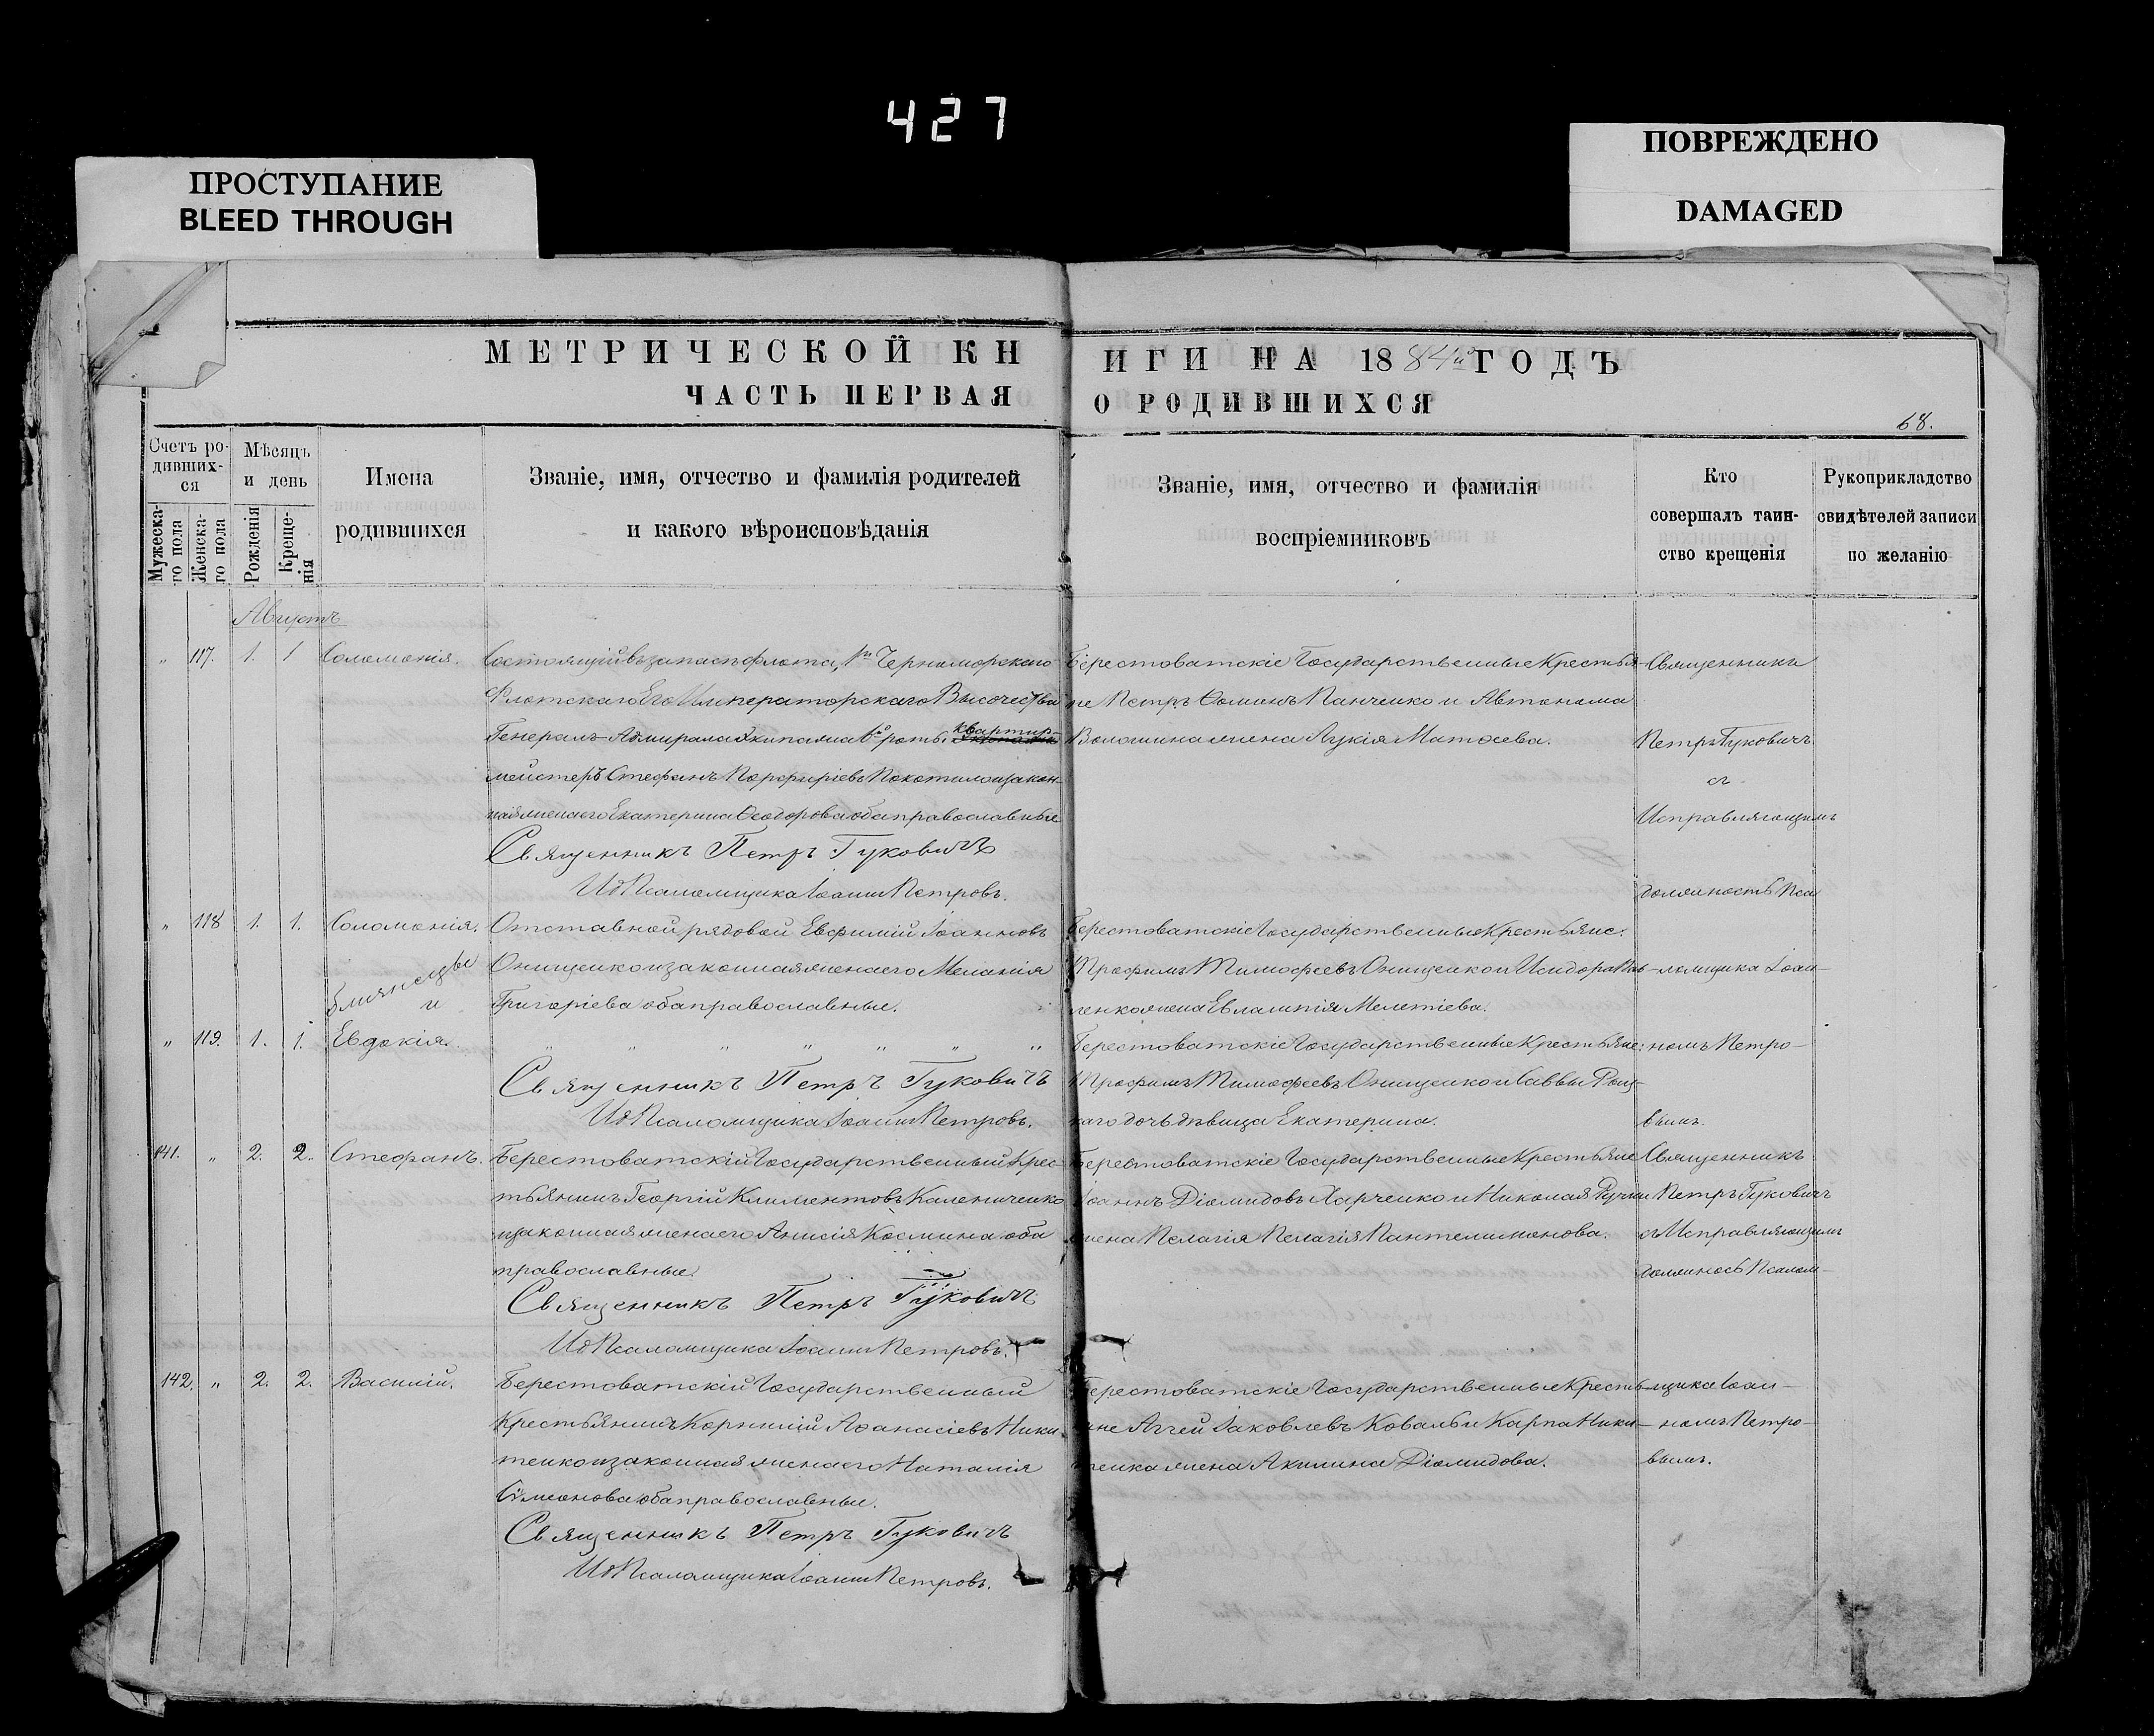 427
ПРОСТУПАНИЕ
BLEED THROUGH
ПОВРЕЖДЕНО
DAMAGED
МЕТРИЧЕСКОЙ КНИГИ НА 1884й ГОДЪ
ЧАСТЬ ПЕРВАЯ О РОДИВШИХСЯ
68.
Счетъ ро-
дивших-
ся
Мужеска-
го пола
Женска-
го пола
Мѣсяцъ
и день
Рожденія
Креще-
нія
Имена
родившихся
Званіе, имя, отчество и фамилія родителей
и какого вѣроисповѣданія
Званіе, имя, отчество и фамилія
воспріемниковъ
Кто
совершалъ таин-
ство крещенія
Рукоприкладство
свидѣтелей записи
по желанію
Августъ
„ 117. 1. 1 Соломонія.
Состоящій въ запасѣ флота, 1го Черноморскаго
Флотскаго Его Императорскаго Высочества
Генералъ-Адмирала Экипажа 6й роты квартир-
мейстеръ Стефанъ Порфиріевъ Покотило и закон-
ная жена его Екатерина Ѳеодорова оба православные
Священникъ Петръ Гуковичъ
Ид Псаломщика Іоаннъ Петровъ.
Берестоватскіе Государственные Крестья-
не Петръ Ѳоминъ Панченко и Автонома
Волошина жена Лукія Матѳеева.
Священникъ
Петръ Гуковичъ
съ
Исправляющимъ
должность Пса
„ 118 1. 1. Соломонія.
близнецы
и
Отставной рядовой Евфимій Іоанновъ
Онищенко и законная жена его Меланія
Григоріева оба православные.
Берестоватскіе Государственные Крестьяне.
Трофимъ Тимофеевъ Онищенко и Исидора
ленко жена Евлампія Мелетіева.
-ломщика Іоан-
„ 119. 1. 1. Евдокія.
„ „ „ „ „ „ „
Священникъ Петръ Гуковичъ
Ид Псаломщика Іоаннъ Петровъ.
Берестоватскіе Государственные Крестьяне:
Трофимъ Тимофеевъ Онищенко и Саввы
каго дочь дѣвица Екатерина.
номъ Петро-
вымъ.
141. „ 2. 2. Стефанъ.
Берестоватскій Государственный Крес-
тьянинъ Георгій Климентовъ Калениченко
и законная жена его Анисія Космина оба
православные.
Священникъ Петръ Гуковичъ
Ид Псаломщика Іоаннъ Петровъ.
Берестоватскіе Государственные Крестьяне
Іоаннъ Діомидовъ Харченко и Николая
жена Пелагія Пелагія Пантелимонова.
Священникъ
Петръ Гуковичъ
съ Исправляющимъ
должность Псалом-
142. „ 2. 2. Василій.
Берестоватскій Государственный
Крестьянинъ Корнилій Аѳанасіевъ Ники
тенко и законная жена его Наталія
Сѵмеонова оба православные.
Священникъ Петръ Гуковичъ
Ид Псаломщика Іоаннъ Петровъ.
Берестоватскіе Государственные Кресть-
яне Аггей Іаковлевъ Коваль и Карпа Ники-
тенка жена Акилина Діомидова.
щика Іоан-
номъ Петро-
вымъ.